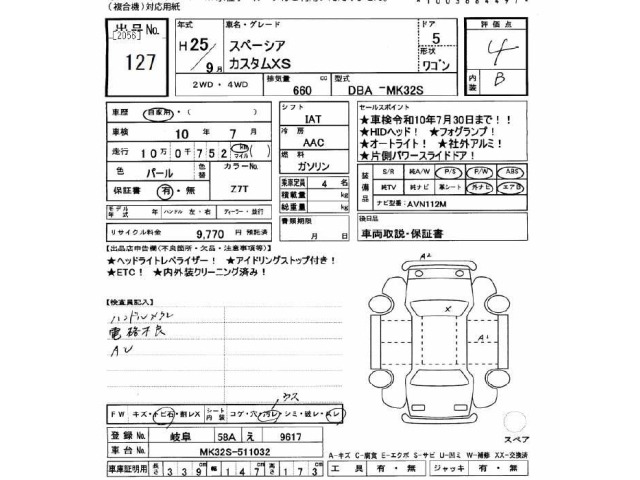 (複合機)対応用紙
出品No.
[2056]
127
年式 車名・グレード ドア 評価点
H25/9月 スペーシア カスタムXS 5 4
形状 ワゴン
内装 B
2WD ・ 4WD 排気量 660 cc 型式 DBA -MK32S
車歴 自家用・( )
車検 10 年 7 月
走行 10万0千752 km マイル ( )
色 パール 色替 カラーNo. Z7T
保証書 有・無
モデル年式 年 ハンドル 左・右 ディーラー・並行
リサイクル料金 9,770 円 預託済
シフト IAT
冷房 AAC
燃料 ガソリン
乗車定員 4 名
積載量 kg
総重量 kg
書類期限 月 日
セールスポイント
★車検令和10年7月30日まで!!
★HIDヘッド! ★フォグランプ!
★オートライト! ★社外アルミ!
★片側パワースライドドア!
装備品 S/R 純A/W P/S P/W ABS
純TV 純ナビ 革シート 外ナビ エアB
ナビ型番: AVN112M
後日品
車両取説・保証書
【出品店申告欄(不良箇所・欠品・注意事項等)】
★ヘッドライトレベライザー! ★アイドリングストップ付き!
★ETC! ★内外装クリーニング済み!
【検査員記入】
ハンドルスレ
電格不良
AU
A2
X
A1
ウス
FW キズ・トビ石・割レX シート内装 コゲ・穴・汚レ・シミ・破レ・スレ
登録No. 岐阜 58A え 9617
車台No. MK32S-511032
車庫証明用 長さ 339cm 幅 147cm 高さ 173cm
スペア
A-キズ C-腐食 E-エクボ S-サビ U-凹ミ W-補修 XX-交換済
工具 有・無 ジャッキ 有・無